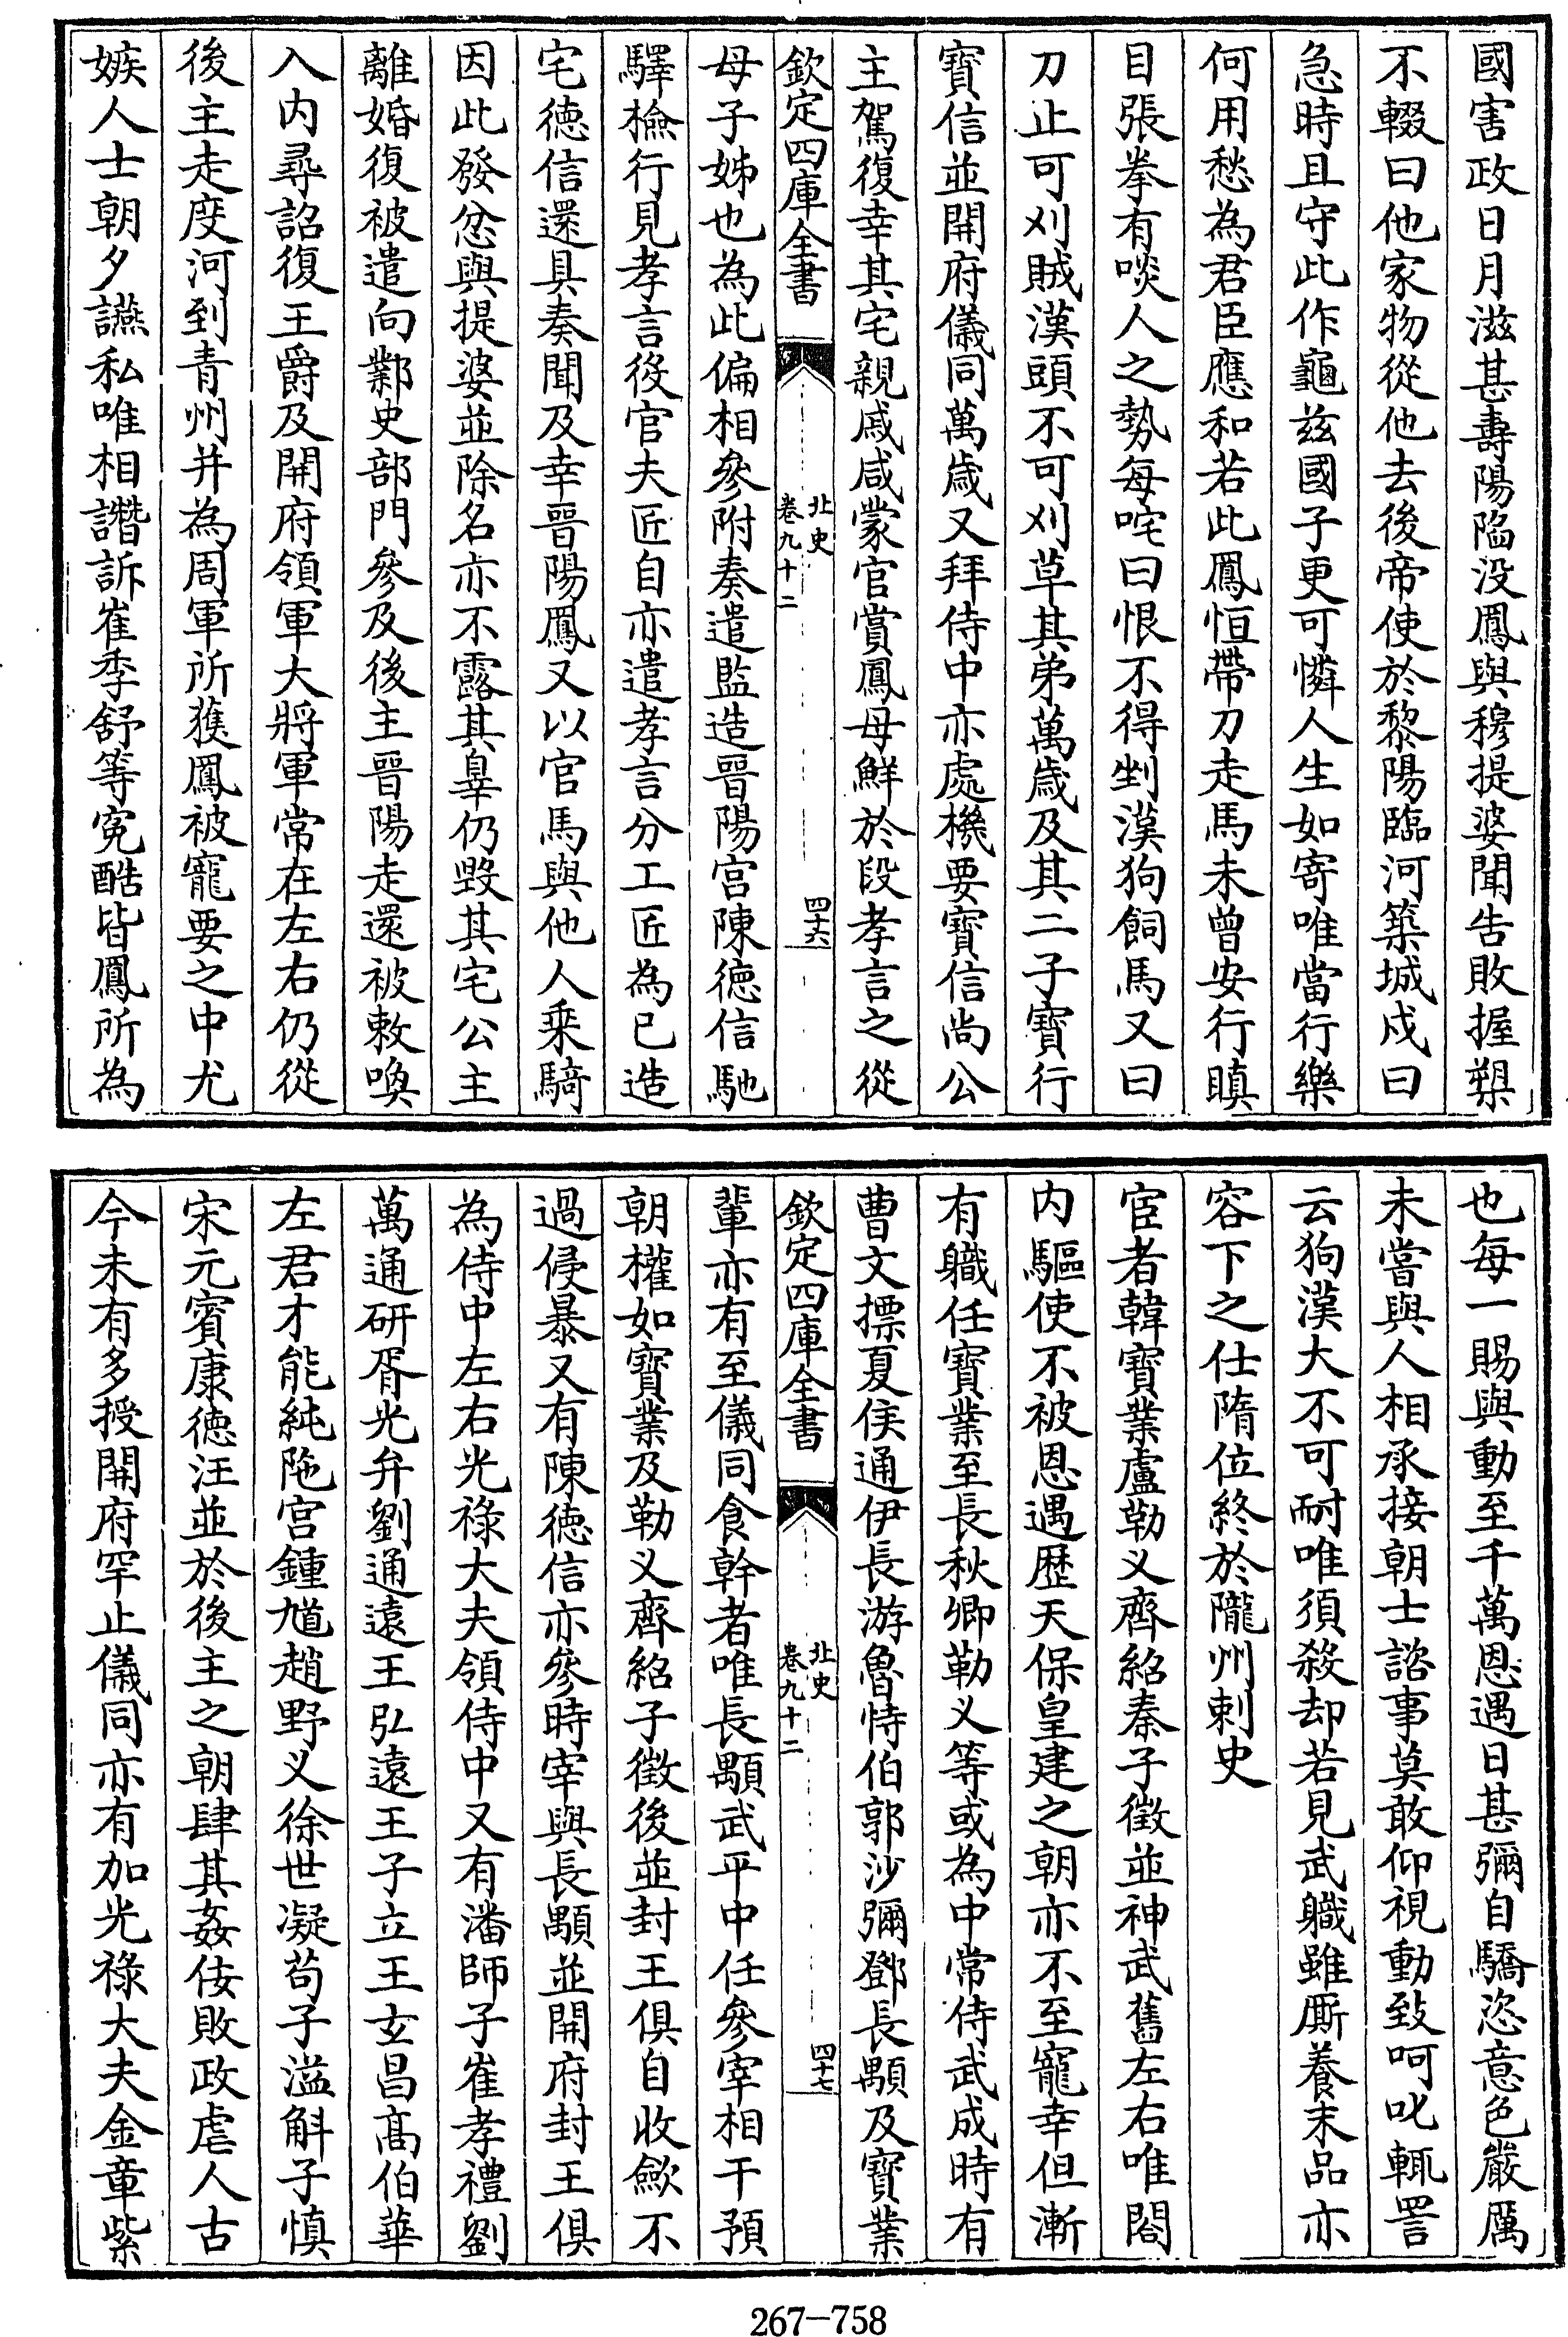 國害政日月滋甚壽陽陷没鳳與穆提婆聞告敗握槊
不輟曰他家物從他去後帝使於黎陽臨河築城戍曰
急時且守此作龜兹國子更可憐人生如寄唯當行樂
何用愁為君臣應和若此鳳恒帶刀走馬未曾安行瞋
目張拳有啖人之勢每咤曰恨不得剉漢狗飼馬又曰
刀止可刈賊漢頭不可刈草其弟萬歳及其二子寳行
寳信並開府儀同萬歳又拜侍中亦處機要寳信尚公
主駕復幸其宅親戚咸蒙官賞鳳母鮮於段孝言之從
欽定四庫全書
北史
卷九十二
四十六
母子姊也為此偏相參附奏遣監造晉陽宫陳徳信馳
驛檢行見孝言役官夫匠自亦遣孝言分工匠為已造
宅徳信還具奏聞及幸晉陽鳳又以官馬與他人乘騎
因此發忿與提婆並除名亦不露其辠仍毀其宅公主
離婚復被遣向鄴史部門參及後主晉陽走還被敕喚
入内尋詔復王爵及開府領軍大將軍常在左右仍從
後主走度河到青州并為周軍所獲鳳被寵要之中尤
嫉人士朝夕讌私唯相譖訴崔季舒等寃酷皆鳳所為
也每一賜與動至千萬恩遇日甚彌自驕恣意色嚴厲
未嘗與人相承接朝士諮事莫敢仰視動致呵叱輒詈
云狗漢大不可耐唯須殺却若見武職雖厮養末品亦
容下之仕隋位終於隴州刺史
宦者韓寳業盧勒义齊紹秦子徵並神武舊左右唯閤
内驅使不被恩遇歴天保皇建之朝亦不至寵幸但漸
有職任寳業至長秋卿勒义等或為中常侍武成時有
曹文摽夏侯通伊長游魯恃伯郭沙彌鄧長顒及寳業
欽定四庫全書
北史
卷九十二
四十七
輩亦有至儀同食幹者唯長顒武平中任參宰相干預
朝權如寳業及勒义齊紹子徵後並封王俱自收歛不
過侵暴又有陳徳信亦參時宰與長顒並開府封王俱
為侍中左右光祿大夫領侍中又有潘師子崔孝禮劉
萬通研胥光弁劉通遠王弘遠王子立王玄昌髙伯華
左君才能純陁宫鍾馗趙野义徐世凝苟子溢斛子慎
宋元賓康徳汪並於後主之朝肆其姦佞敗政虐人古
今未有多授開府罕止儀同亦有加光祿大夫金章紫
267-758